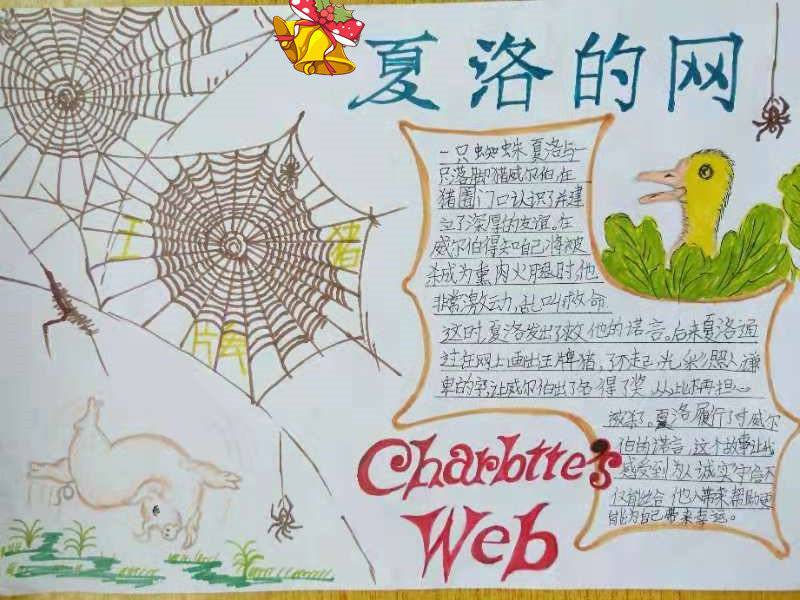 夏洛的网
一只蜘蛛夏洛与一
只落脚猪威尔伯,在
猪圈门口认识了并建
立了深厚的友谊。在
威尔伯得知自己将被
杀成为熏肉火腿时他
非常激动,乱叫救命
这时,夏洛发出了救他的诺言。后来夏洛通
过在网上画出王牌猪,了不起,光彩照人谦
卑的字,让威尔伯出了名得了奖 从此不再担心
被杀了。夏洛履行了对威尔
伯的诺言,这个故事让我
感受到为人诚实守信不
仅能给他人带来帮助更
能为自己带来幸运。
王
猪
牌
Charlotte's
Web